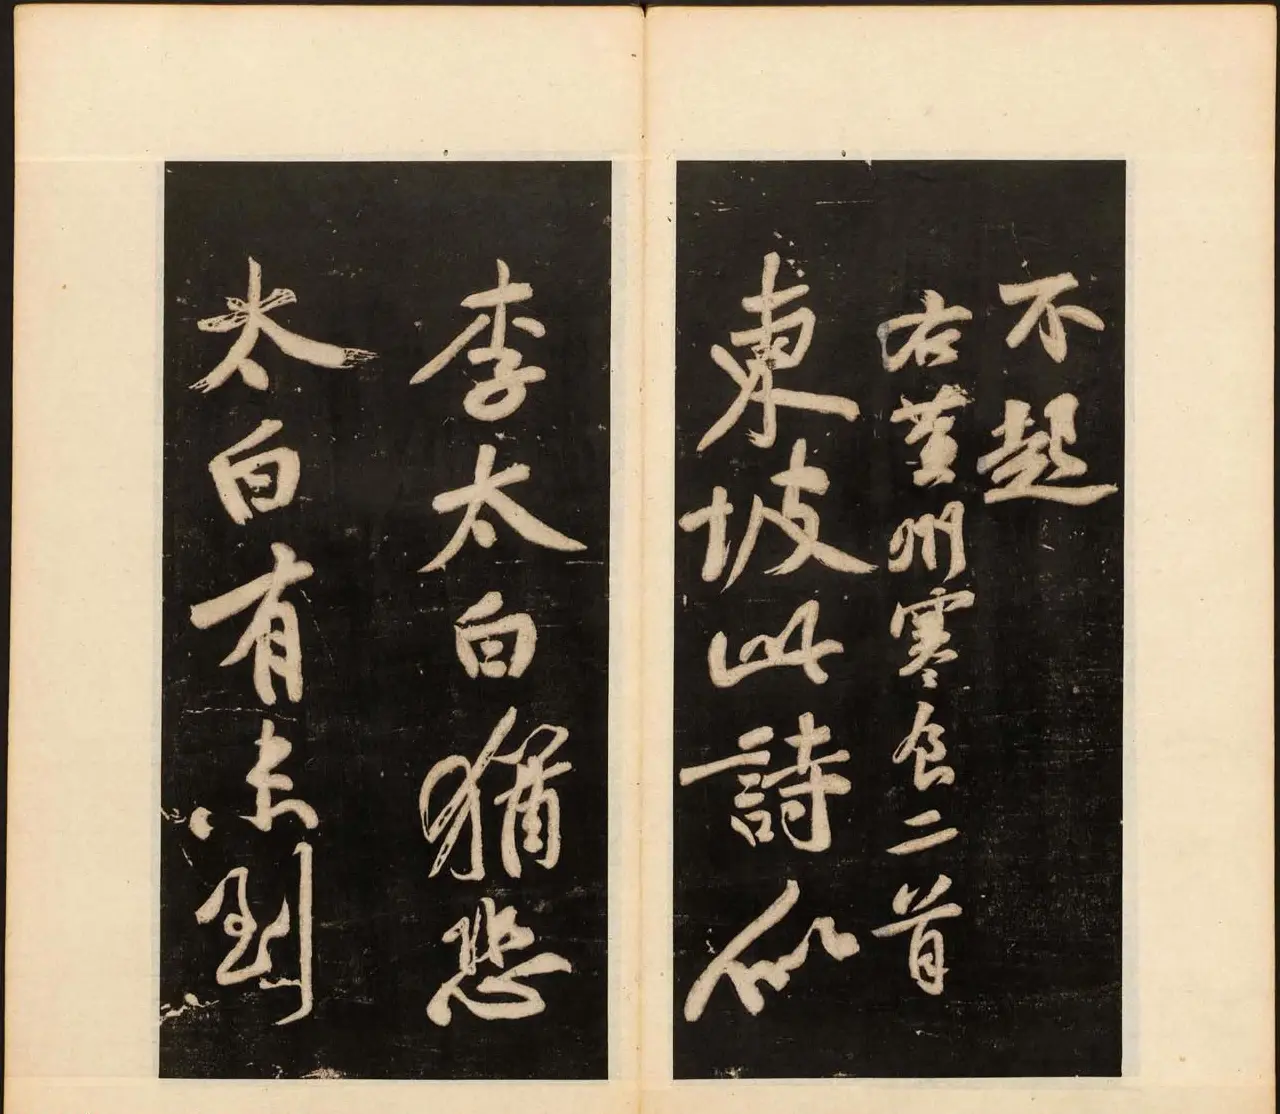 不起
右黃州寒食二首
東坡此詩似
李太白猶恐
太白有未到